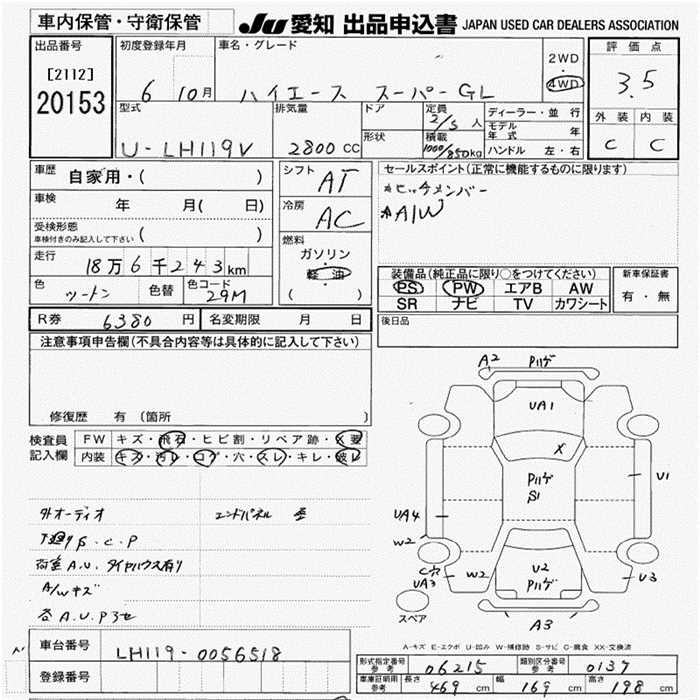 車内保管・守衛保管
JU 愛知 出品申込書 JAPAN USED CAR DEALERS ASSOCIATION
出品番号
[2112]
20153
初度登録年月
6 10月
車名・グレード
ハイエース スーパーGL
2WD
・
4WD
評価点
3.5
外装 内装
C C
型式
U-LH119V
排気量
2800 CC
ドア
形状
定員
2/5 人
積載
1000/850kg
ディーラー・並行
モデル年式 年
ハンドル 左・右
車歴 自家用・( )
車検 年 月( 日)
受検形態
車検付きのみ記入して下さい ( )
走行 18万6千243km
色 ツートン 色替 色コード 29M
シフト AT
冷房 AC
燃料
ガソリン
・
軽油
( )
セールスポイント(正常に機能するものに限ります)
*ヒッチメンバー
*A/W
装備品(純正品に限り○をつけてください)
PS PW エアB AW
SR ナビ TV カワシート
新車保証書
有・無
後日品
R券 6380 円 名変期限 月 日
注意事項申告欄(不具合内容等は具体的に記入して下さい)
修復歴 有(箇所 )
検査員記入欄
FW キズ・飛石・ヒビ割・リペア跡・X要
内装 キズ・汚レ・コゲ・穴・スレ・キレ・破レ
外オーディオ
エンドパネル
S.C.P
荷室A.U. タイヤハウス有り
A/Wキズ
各A.U.P3セ
A2 Pハゲ
UA1
X
Pハゲ
S1
U1
UA4
W2
C穴
UA3
W2
U2
Pハゲ
U3
A3
スペア
A-キズ E-エクボ U-凹み W-補修跡 S-サビ C-腐食 XX-交換済
車台番号 LH119-0056518
登録番号
形式指定番号 参考 06215 類別区分番号 参考 0137
車庫証明用 参考 長さ 469 cm 幅 169 cm 高さ 198 cm